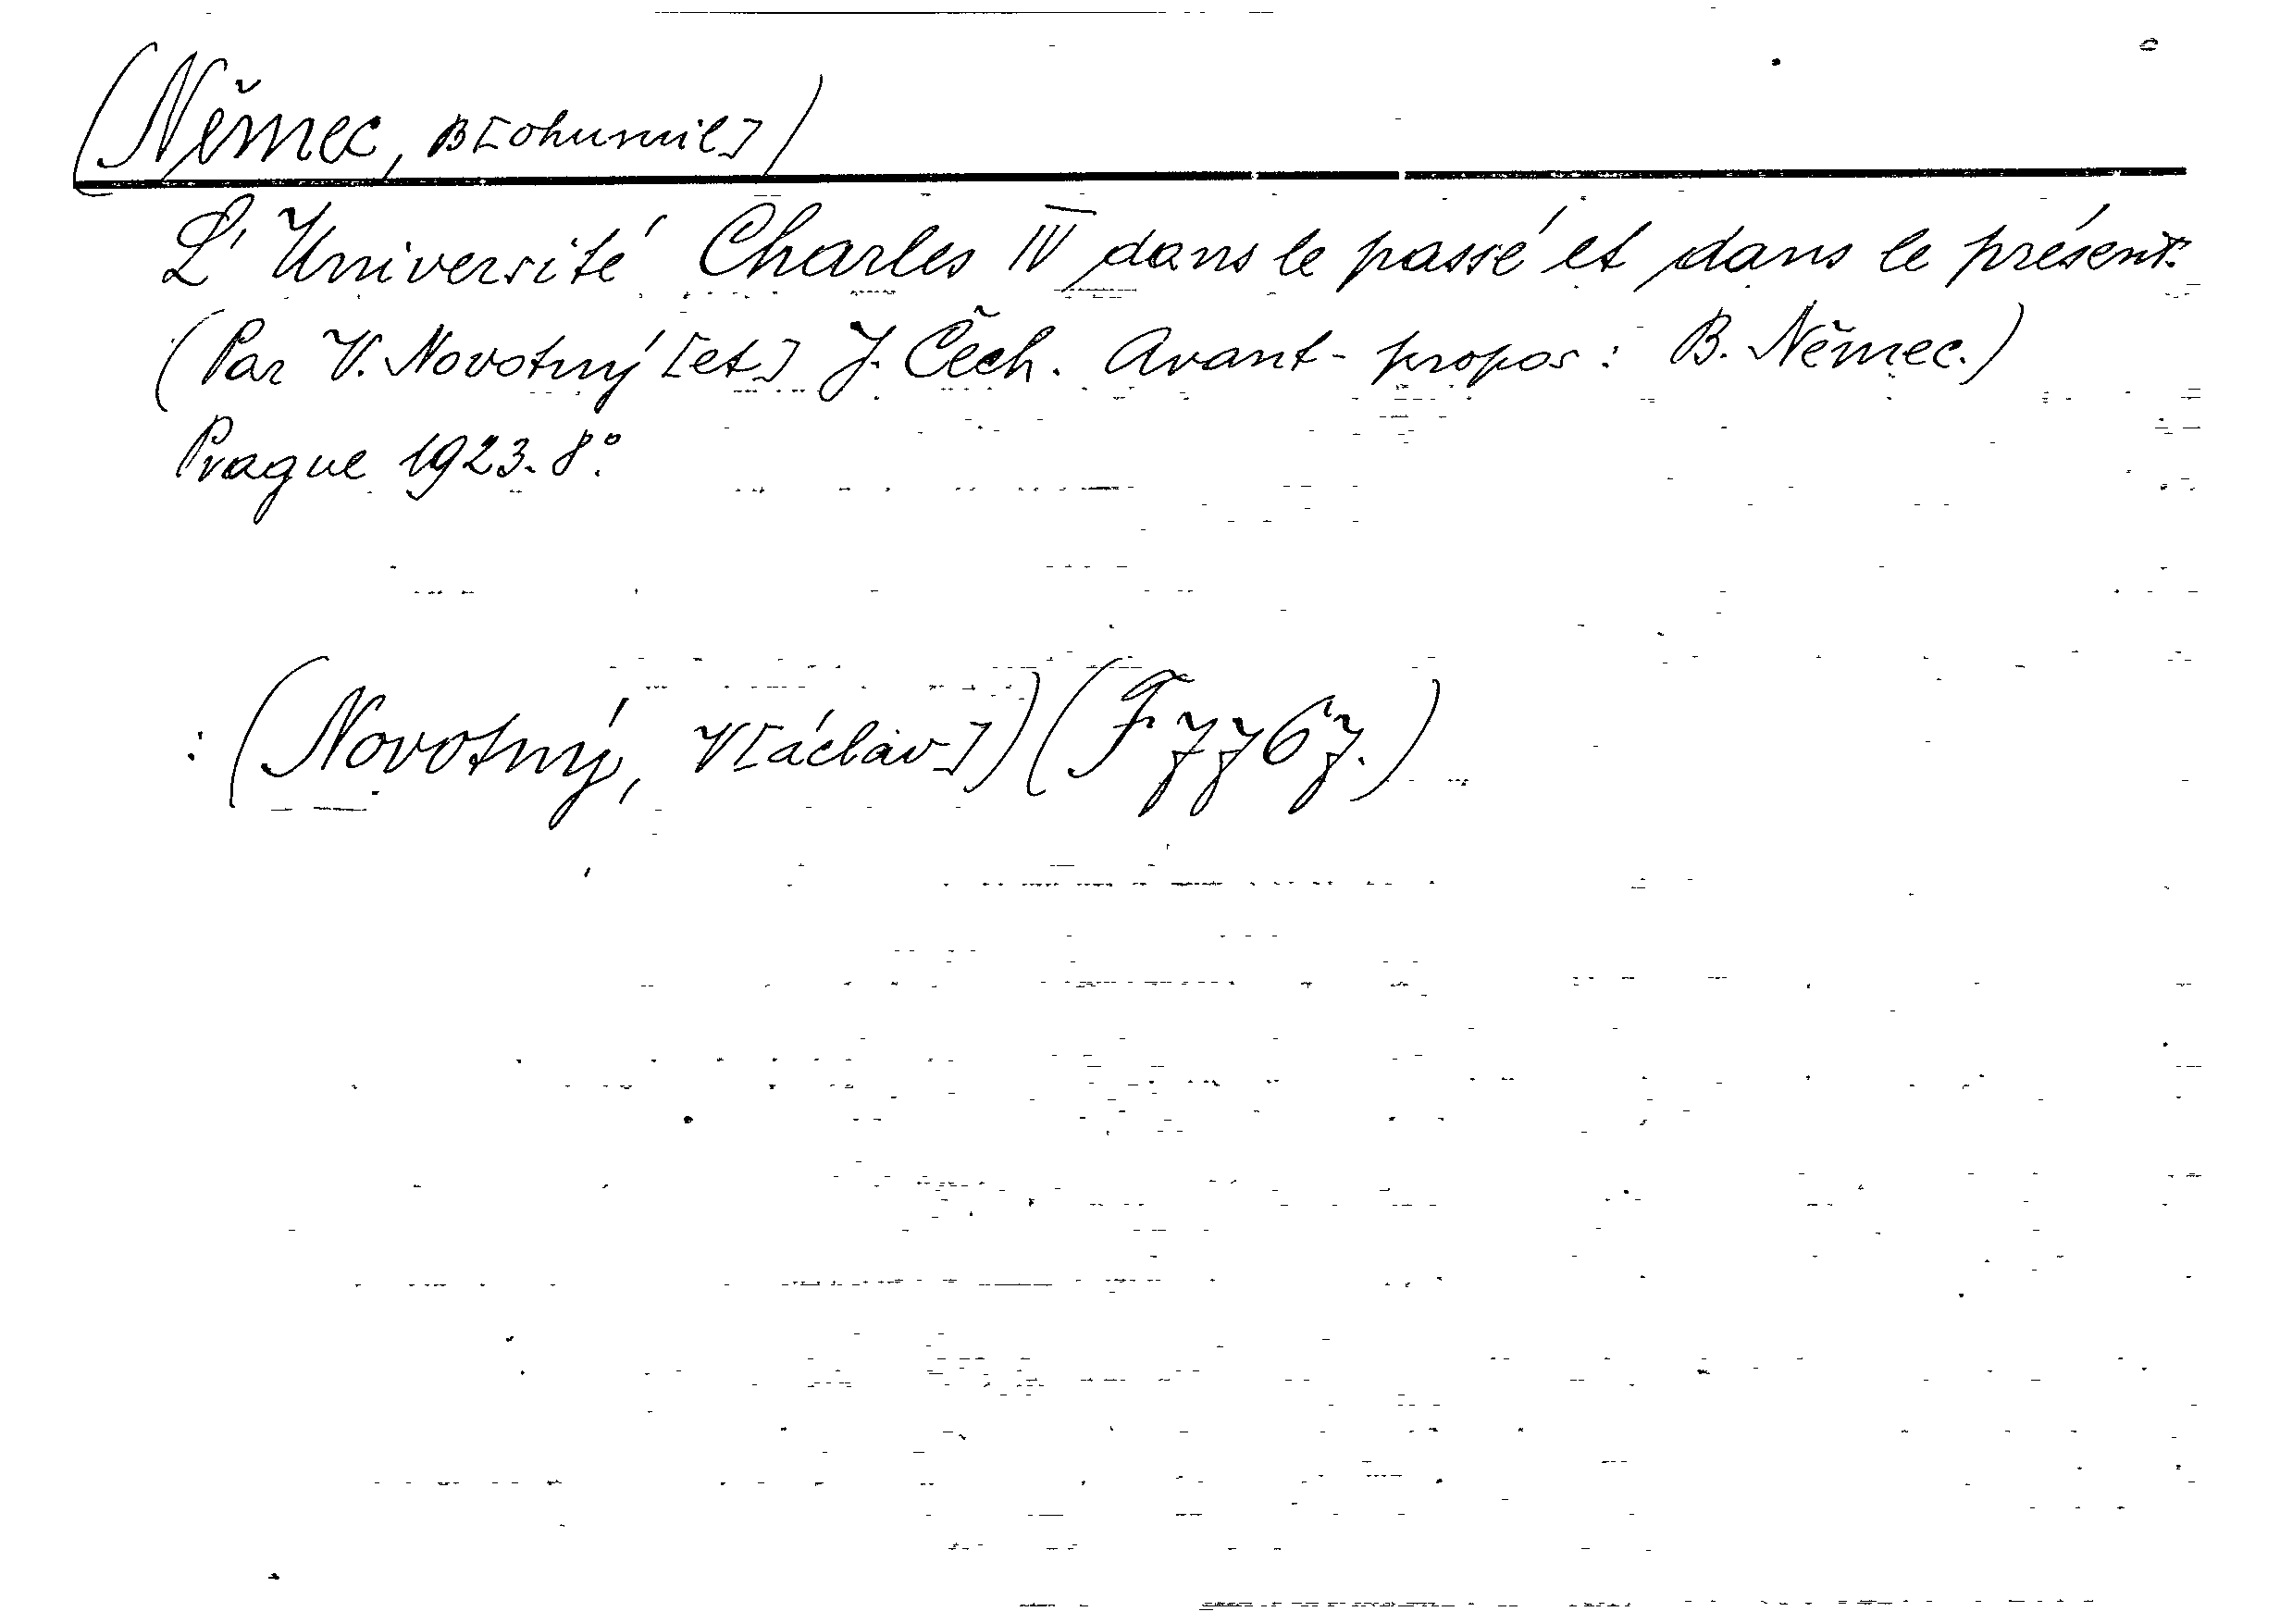 (Němec, B[ohumil])
L'Université Charles IV dans le passé et dans le présent.
(Par V. Novotný [et] J. Čech. Avant-propos: B. Němec.)
Prague 1923. 8°.
: (Novotný, V[áclav]) (F 7767.)